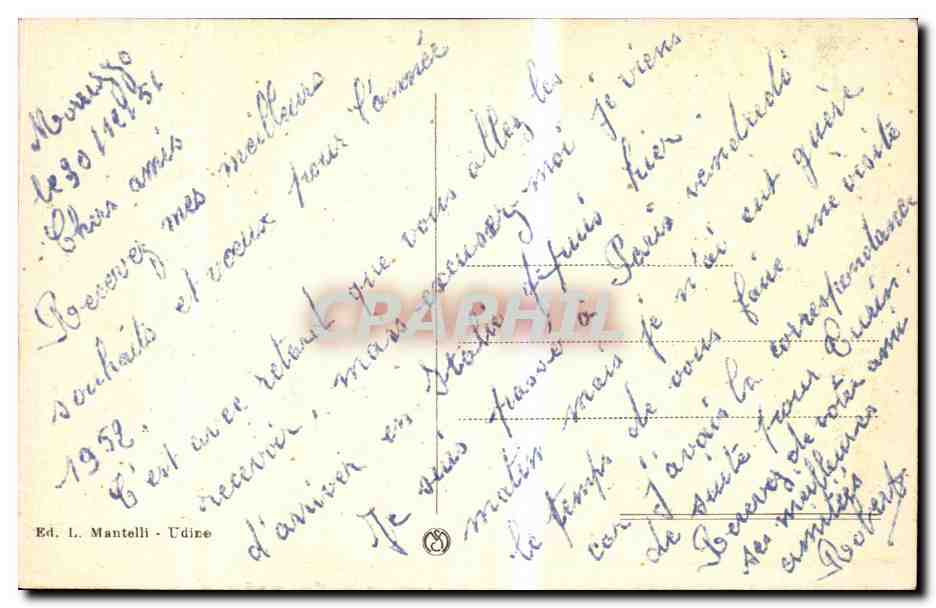 Moruzzo
le 30/12/51
Chers amis
Recevez mes meilleurs
souhaits et voeux pour l'année
1952.
C'est avec retard que vous allez les
recevoir, mais excusez-moi je viens
d'arriver en Italie depuis hier.
Je suis passé à Paris vendredi
matin mais je n'ai eut guère
le temps de vous faire une visite
car j'avais la correspondance
de suite pour Turin
Recevez de votre ami
ses meilleures
amitiés
Robert
Ed. L. Mantelli - Udine
CPAPHIL